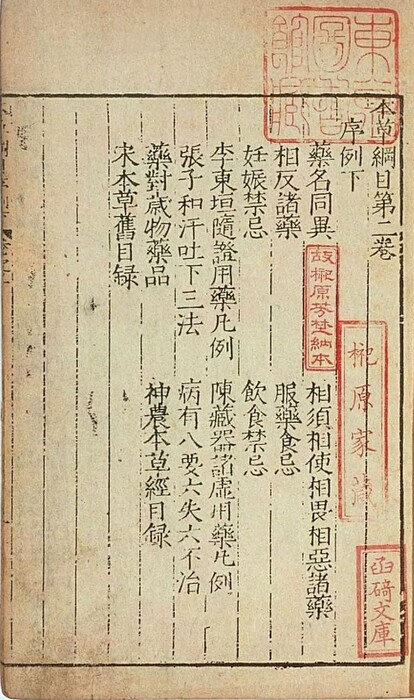 東京圖書館藏
本草綱目第二卷
序例下
藥名同異　相須相使相畏相惡諸藥
相反諸藥　服藥食忌
妊娠禁忌　飲食禁忌
李東垣隨證用藥凡例　陳藏器諸虛用藥凡例
張子和汗吐下三法　病有八要六失六不治
藥對歲物藥品　神農本草經目録
宋本草舊目録
故榊原芳埜納本
榊原家藏
函碕文庫